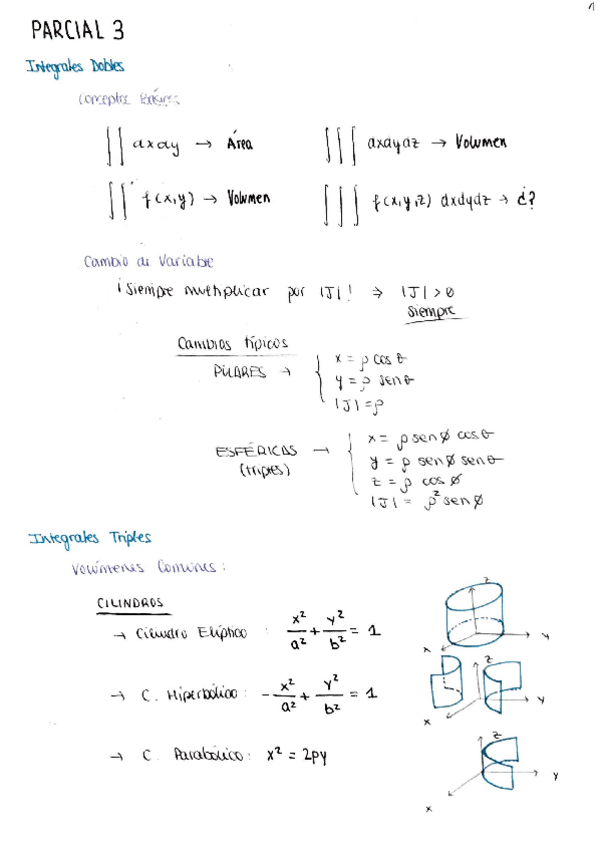 1
PARCIAL 3
Integrales Dobles
Conceptos Básicos
∬ dxdy → Área
∭ dxdydz → Volumen
∬ f(x,y) → Volumen
∭ f(x,y,z) dxdydz → ¿?
Cambio de Variable
¡Siempre multiplicar por |J|! ⇒ |J| > 0
siempre
Cambios típicos
POLARES →
x = ρ cos θ
y = ρ sen θ
|J| = ρ
ESFÉRICAS →
(triples)
x = ρ sen ø cos θ
y = ρ sen ø sen θ
z = ρ cos ø
|J| = ρ² sen ø
Integrales Triples
Volúmenes Comunes:
CILINDROS
→ Cilindro Elíptico: x²/a² + y²/b² = 1
z
x
y
→ C. Hiperbólico: -x²/a² + y²/b² = 1
z
x
y
→ C. Parabólico: x² = 2py
z
x
y